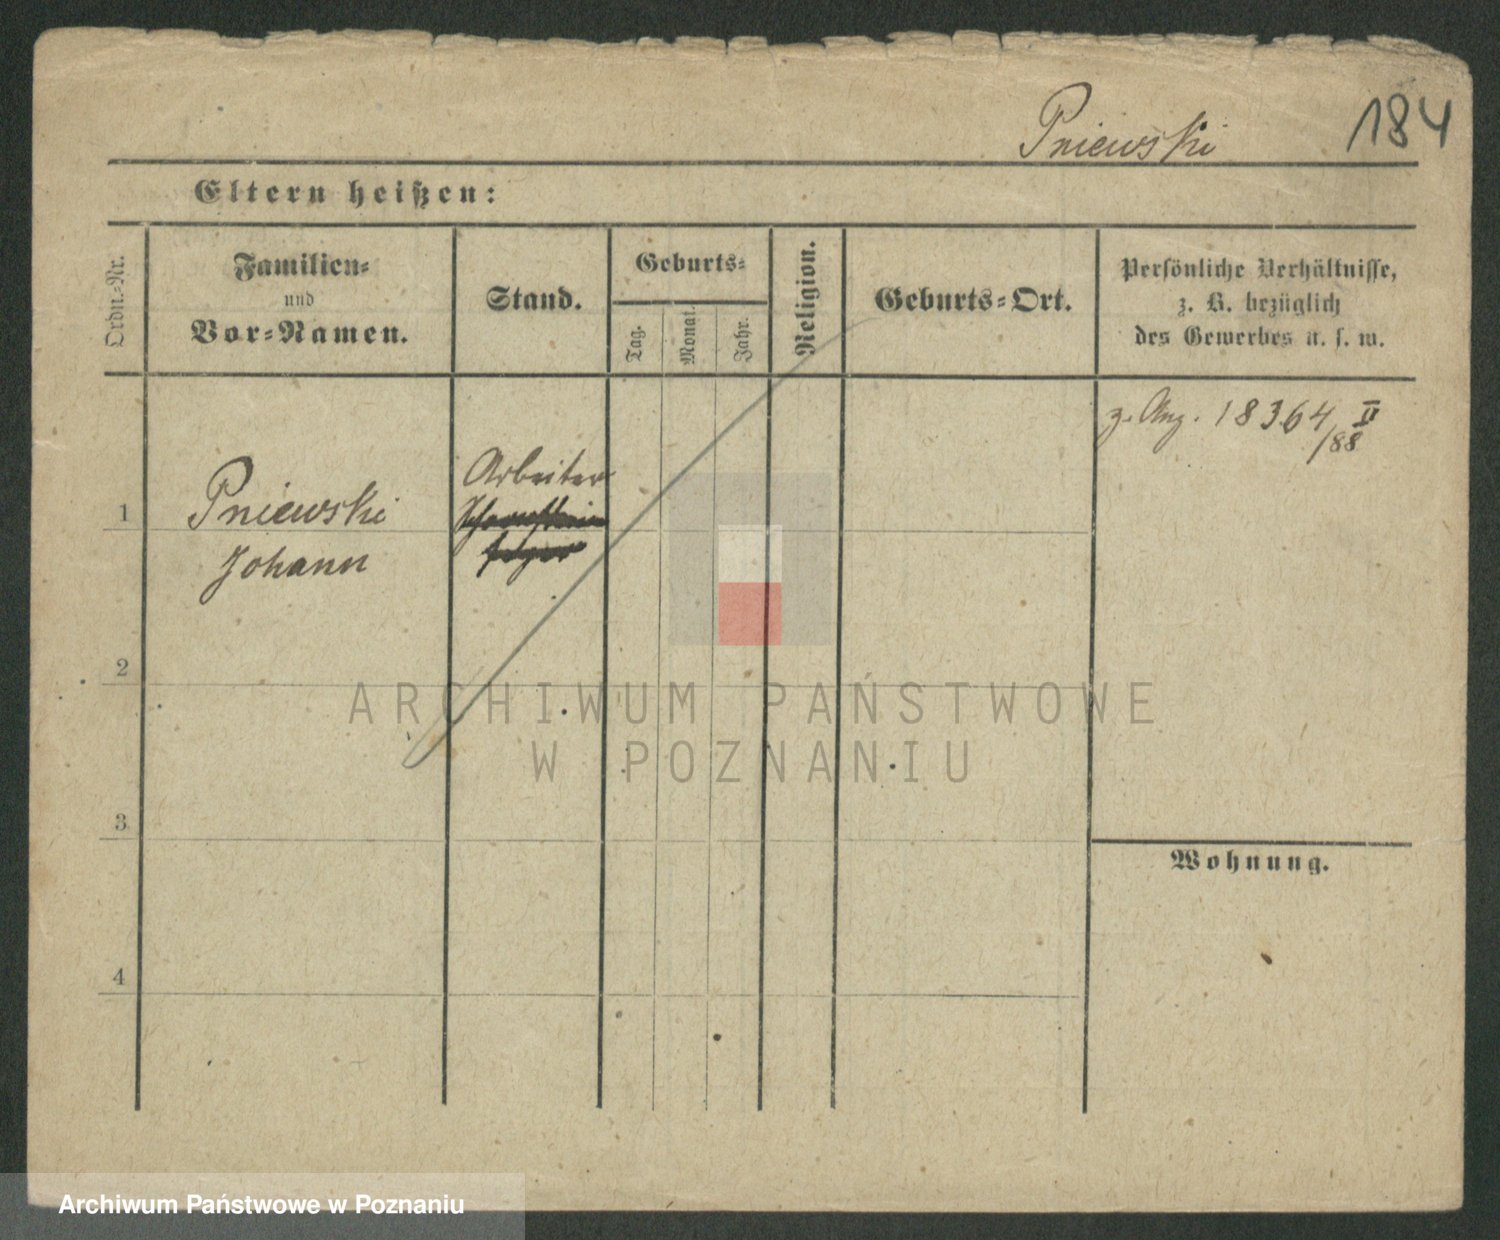 Pniewski
184
Eltern heißen:
Ordn.-Nr.
Familien-
und
Vor-Namen.
Stand.
Geburts-
Tag.
Monat.
Jahr.
Religion.
Geburts-Ort.
Persönliche Verhältnisse,
z. B. bezüglich
des Gewerbes u. s. w.
z. Ang. 18364 II
/88
1
Pniewski
Johann
Arbeiter
Schornstein
feger
2
3
4
Wohnung.
ARCHIWUM PAŃSTWOWE
W POZNANIU
Archiwum Państwowe w Poznaniu